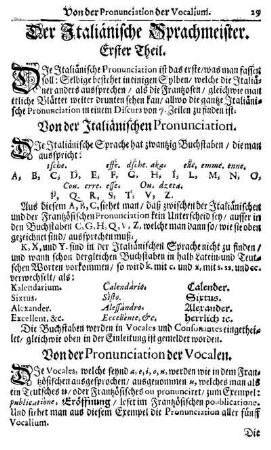 Von der Pronunciation der Vocalium. 19
Der Italiänische Sprachmeister.
Erster Theil.
Die Italiänische Pronunciation ist das erste/ was man fassen
soll: Selbige bestehet in einigen Sylben/ welche die Italiä-
ner anders aussprechen/ als die Frantzosen/ gleichwie man
etliche Blätter weiter drunten sehen kan/ allwo die gantze Italiä-
nische Pronunciation in einem Discurs von 7. Zeilen zu finden ist.
Von der Italiänischen Pronunciation.
Die Italiänische Sprache hat zwantzig Buchstaben/ die man
ausspricht:
A, B, C, D, E, F, G, H, I, L, M, N, O,
P, Q, R, S, T, V, Z.
Aus diesem A, B, C, siehet man/ daß zwischen der Italiänischen
und der Frantzösischen Pronunciation kein Unterscheid sey/ ausser in
den Buchstaben C. G. H. Q. V. Z. welche man dann so/ wie sie oben
gezeichnet sind/ aussprechen muß.
K, X, und Y. sind in der Italiänischen Sprache nicht zu finden/
und wann schon dergleichen Buchstaben in halb Latein- und Teut-
schen Worten vorkommen/ so wird k. mit c. und x. mit s. ss. und cc.
verwechselt/ als:
Kalendarium. Calendário. Calender.
Sixtus. Sisto. Sixtus.
Alexander. Alessandro. Alexander.
Excellent, &c. Eccellente, &c. herrlich ꝛc.
Die Buchstaben werden in Vocales und Consonantes eingethei-
let/ gleichwie oben in der Einleitung ist gemeldet worden.
Von der Pronunciation der Vocalen.
Die Vocales, welche seynd a, e, i, o, u, werden wie in dem Fran-
tzösischen ausgesprochen/ ausgenommen u, welches man als
ein Teutsches u/ oder Frantzösisches ou pronuncirt/ zum Exempel:
publicatione, Eröffnung/ leset im Frantzösischen poublicatione.
Und siehet man aus diesem Exempel die Pronunciation aller fünff
Vocalium.
Die